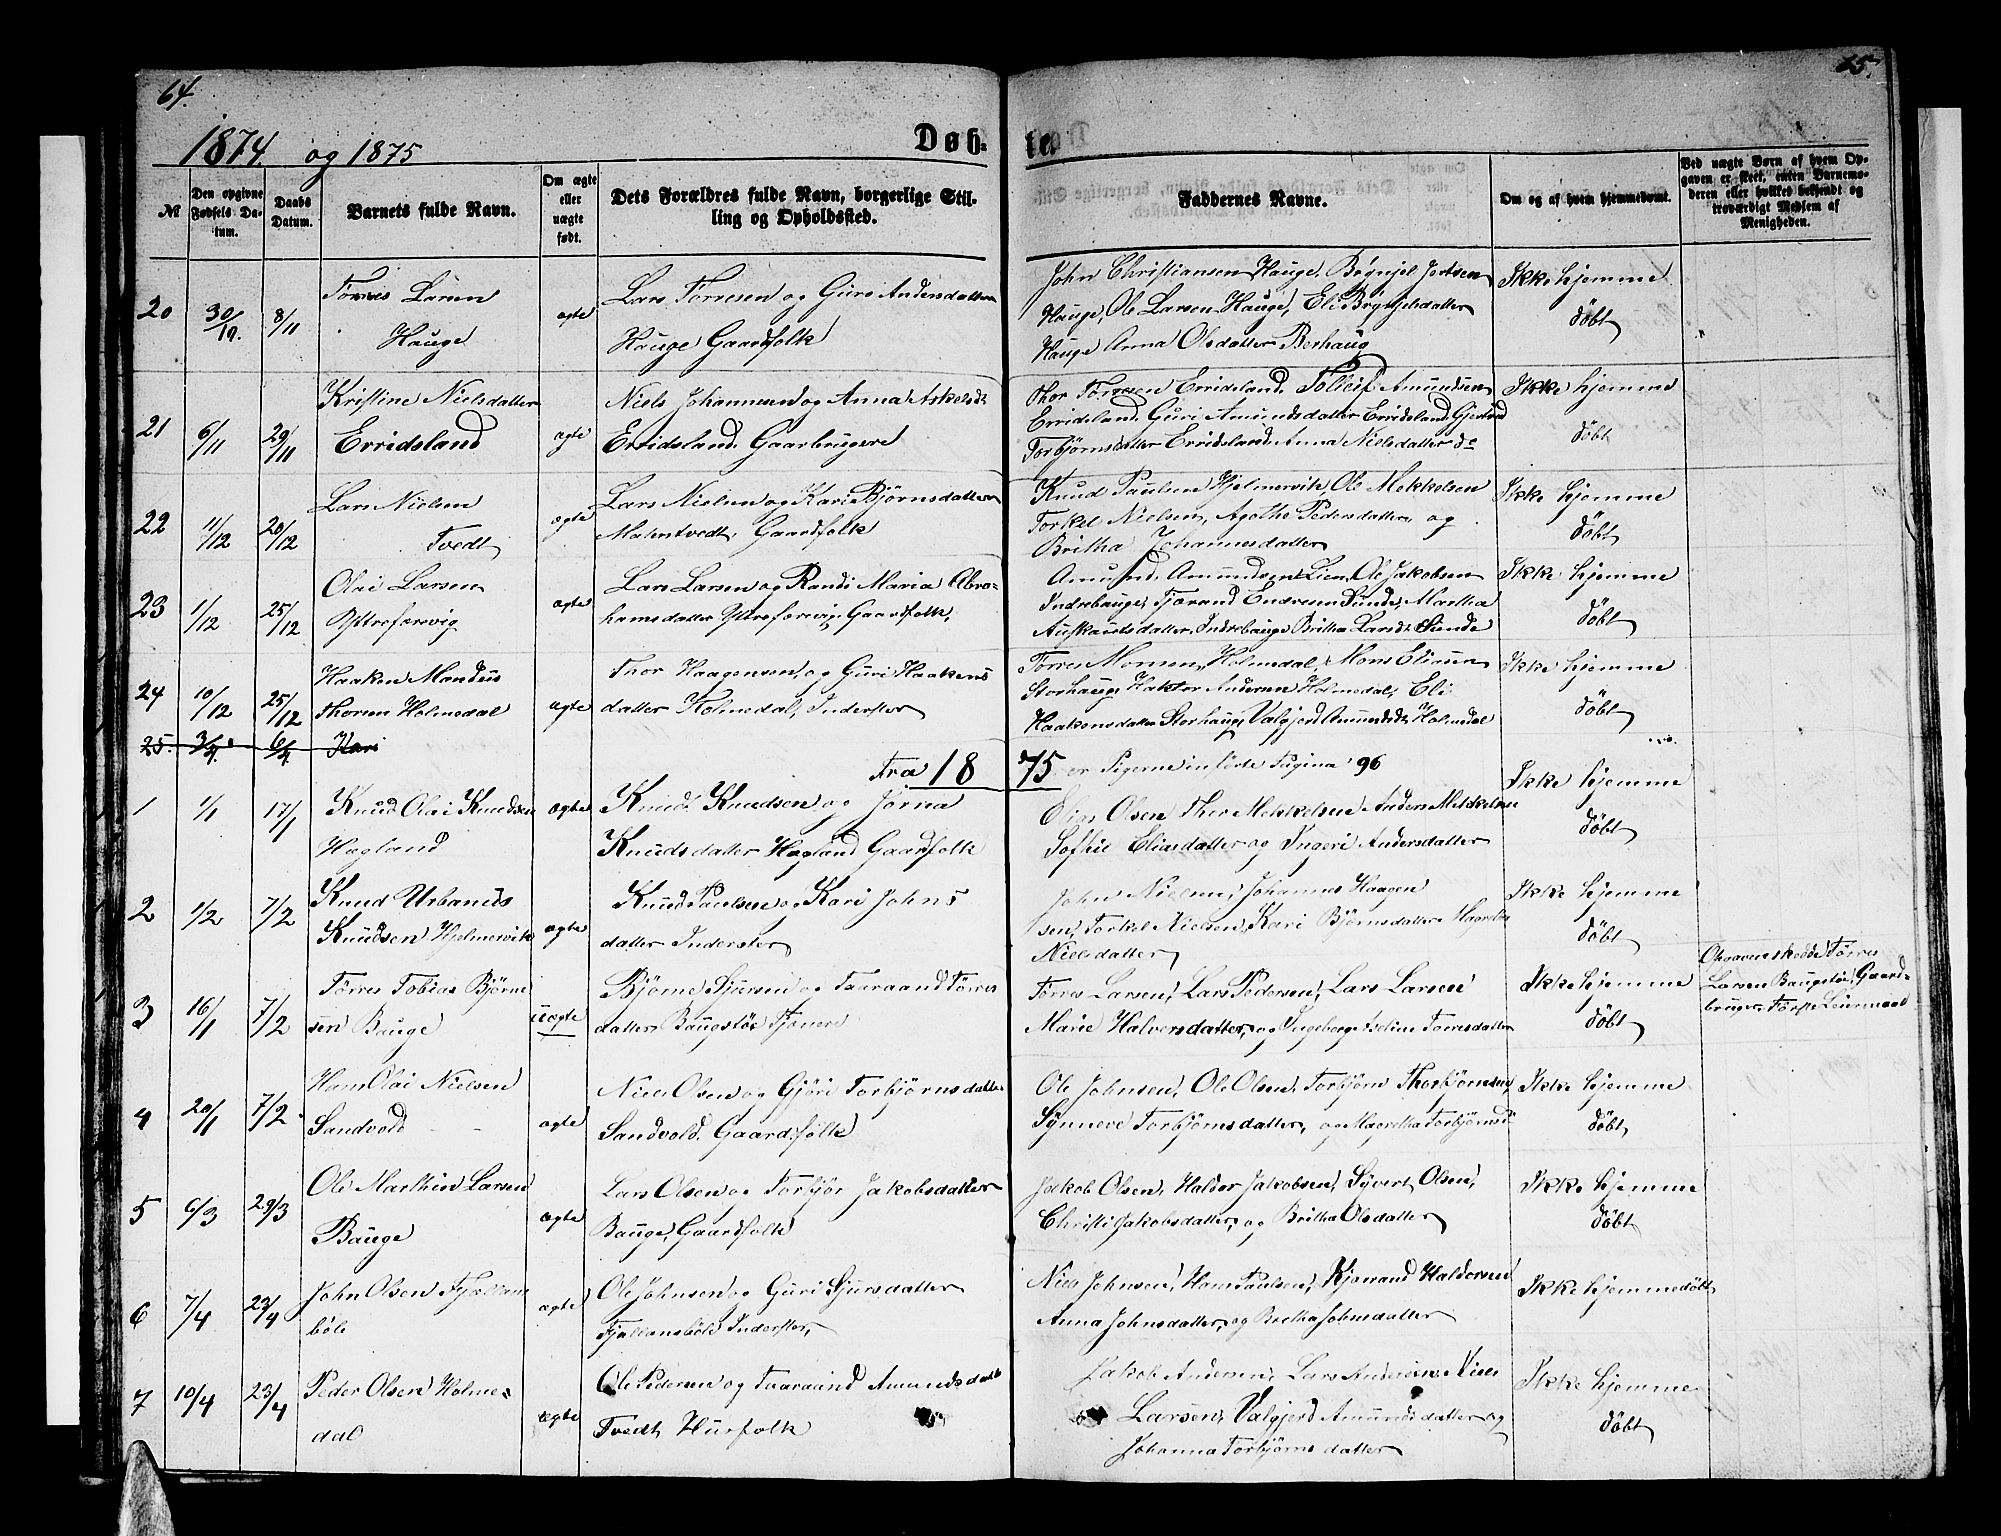 64.
65.
1874. og 1875
Døb-
te.
№
Den opgivne Fødsels Datum.
Daabs Datum.
Barnets fulde Navn.
Om ægte eller uægte født.
Dets Forældres fulde Navn, borgerlige Stilling og Opholdssted.
Faddernes Navne.
Om og af hvem hjemmedøbt.
Ved uægte Børn af hvem Opgaven er skeet, enten Barnemoderen eller hvilket bekjendt og troværdigt Medlem af Menigheden.
20 30/10. 8/11
Tørres Larsen
Hauge
ægte
Lars Tørresen og Guro Andersdatter
Hauge Gaardfolk
John Christiansen Hauge, Brynjel Jertsen
Hauge, Ole Larsen Hauge, Eli Brynjelsdatter
Hauge Anna Olsdatter Berhaug
Ikke hjemme
døbt
21 6/11 29/11
Kristine Nielsdatter
Erridsland
ægte
Niels Johannesen og Anna Askelsdt
Erridsland. Gaarbrugere
Thor Tørresen Erridsland. Tolleif Amundsen
Erridsland. Guri Amundsdatter Erridsland Gjertrud
Torbjørnsdatter Erridsland. Anna Nielsdatter do
Ikke hjemme
døbt
22 11/12 20/12
Lars Nielsen
Tvedt
ægte
Lars Nielsen og Kari Bjørnsdatter
Malmtvedt, Gaardfolk
Knud Paulsen Hjelmervik, Ole Mekkelsen
Torkel Nielsen, Agathe Pedersdatter og
Britha Johannesdatter
Ikke hjemme
døbt
23 1/12 25/12
Olai Larsen
Ystreforevig
ægte
Lars Larsen og Randi Maria Abra-
hamsdatter Ystreforevig, Gaardfolk,
Amund Amundsen Lien, Ole Jakobsen
Indrebauge, Tjærand Endresen Sunde, Martha
Auskaurtsdatter Indrebauge Britha Larsdt Sunde
Ikke hjemme
døbt
24 10/12 25/12
Haaken Mandius
Thorsen Holmedal
ægte
Thor Haagensen og Guri Haakens
datter Holmedal, Inderster
Tørres Monsen, Holmedal, Mons Eliasen
Storhaug, Haktor Andersen Holmedal, Eli
Haakensdatter Storhaug, Valgjerd Amundsdt Holmedal
Ikke hjemme
døbt
25. 3/4. 6/4. Kari
Fra 18 75 er Pigerne inførte Pagina 96
1 1/1 17/1
Knud Olai Knudsen
Hogland
ægte
Knud Knudsen og Jorna
Knudsdatter Hogland Gaardfolk
Elias Olsen Thor Mekkelsen Anders Mekkelsen
Sofhie Eliasdatter og Ingeri Andersdatter
Ikke hjemme
døbt
2 1/2 7/2
Knud Urbanus
Knudsen Hjelmervik
ægte
Knud Paulsen og Kari Johns
datter Inderster
John Nielsen, Johannes Haagen
sen, Torkel Nielsen, Kari Bjørnsdatter Magretha
Nielsdatter
Ikke hjemme
døbt
3 16/1 7/2
Tørres Tobias Bjørne
sen Bauge
uægte
Bjørne Sjursen og Taaraand Tørres
datter Baugstø Tjenere
Tørres Larsen, Lars Pedersen, Lars Larsen
Marie Halversdatter, og Ingeborg Iseline Tørresdatter
Ikke hjemme
døbt
Opgaven skedde Tørres
Larsen Baugstø, Gaard-
bruger, Første Leiermaal
4 20/1 7/2
Hans Olai Nielsen
Sandvold
ægte
Niels Olsen og Gjøri Torbjørnsdatter
Sandvold. Gaardfolk
Ole Johnsen, Ole Olsen, Torbjørn Thorbjørnsen,
Synneve Torbjørnsdatter, og Magretha Torbjørnsd
Ikke hjemme
døbt
5 6/3 29/3
Ole Marthin Larsen
Bauge
ægte
Lars Olsen og Torbjør Jakobsdatter
Bauge, Gaardfolk
Jakob Olsen, Haldor Jakobsen, Syvert Olsen,
Christi Jakobsdatter, og Britha Olsdatter
Ikke hjemme
døbt
6 7/4 23/4
John Olsen Fjellans
bøle
ægte
Ole Johnsen og Guri Sjursdatter
Fjellansbøle Inderster,
Niels Johnsen, Hans Paulsen, Kjerrand Haldorsen
Anna Johnsdatter, og Bretha Johnsdatter
Ikke hjemmedøbt
7 10/4 23/4
Peder Olsen Holme-
dal
ægte
Ole Pedersen og Taaraand Amundsdatt
Tvedt Husfolk
Jakob Andersen, Lars Andersen, Niels
Larsen, Valgjerd Amundsdatter og
Johanna Torbjørnsdatter
Ikke hjemme
døbt